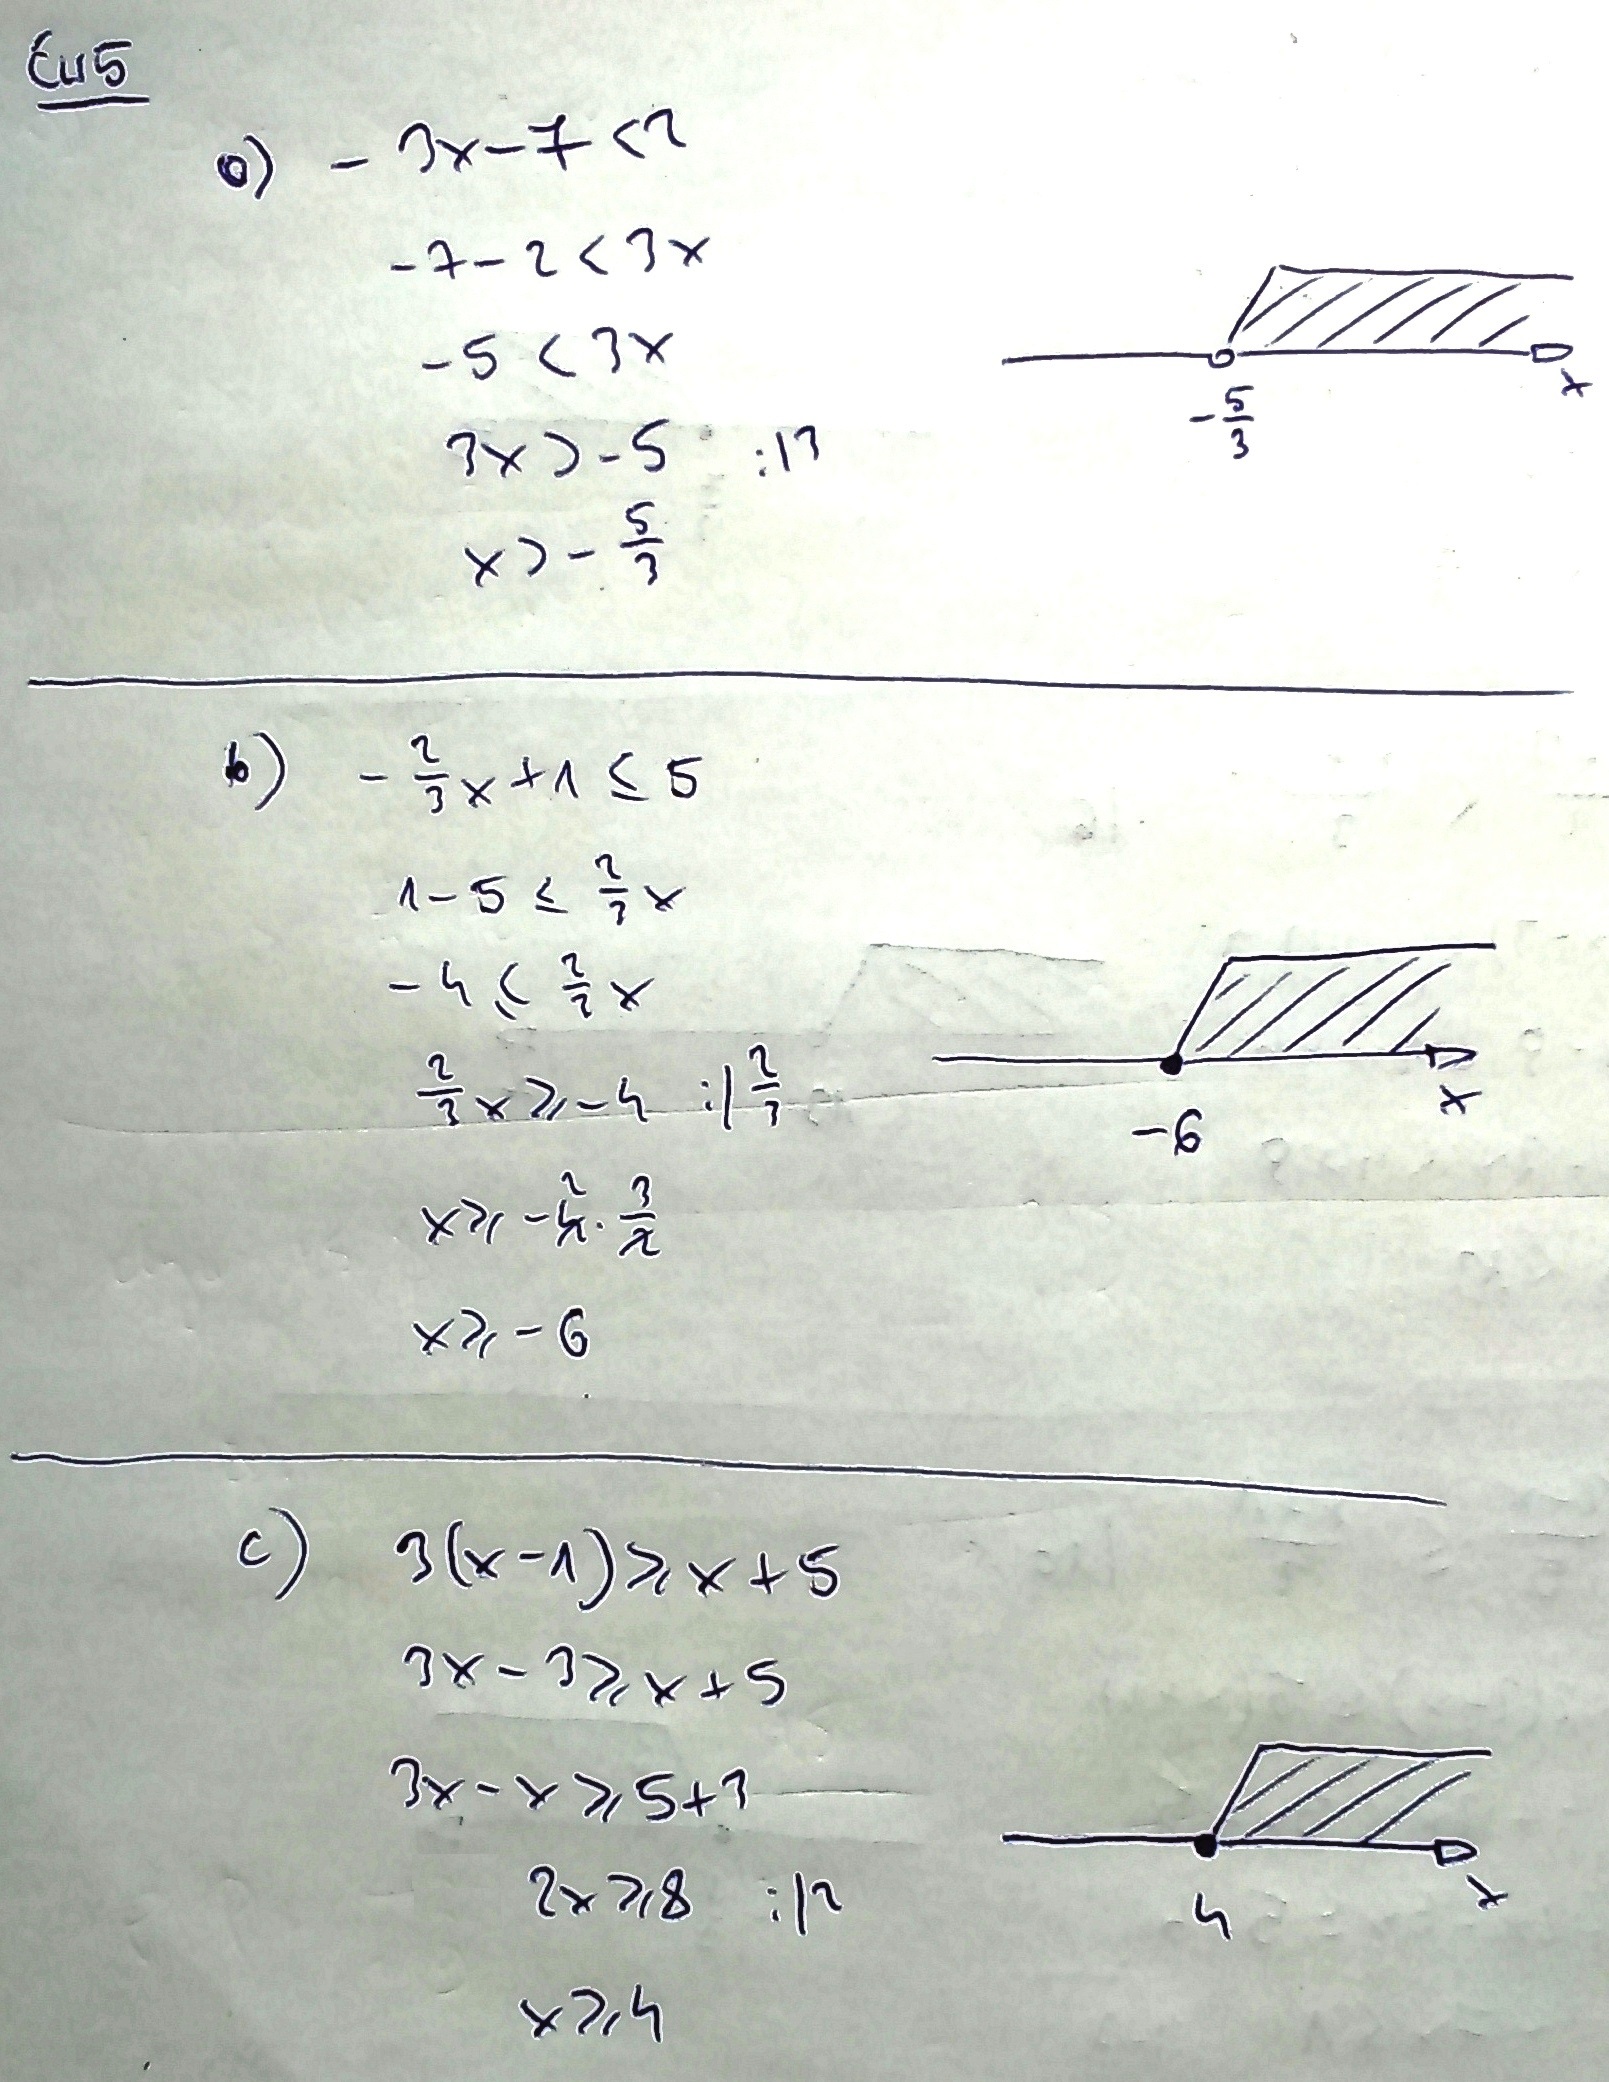 Ćw 5
a) - 3x - 7 < 2
-7 - 2 < 3x
-5 < 3x
3x > -5 :|3
x > - 5/3
- 5/3
x
b) - 2/3 x + 1 ≤ 5
1 - 5 ≤ 2/3 x
-4 ≤ 2/3 x
2/3 x ≥ -4 :| 2/3
x ≥ -4 2 · 3/2
x ≥ -6
-6
x
c) 3(x-1) ≥ x + 5
3x - 3 ≥ x + 5
3x - x ≥ 5 + 3
2x ≥ 8 :|2
x ≥ 4
4
x